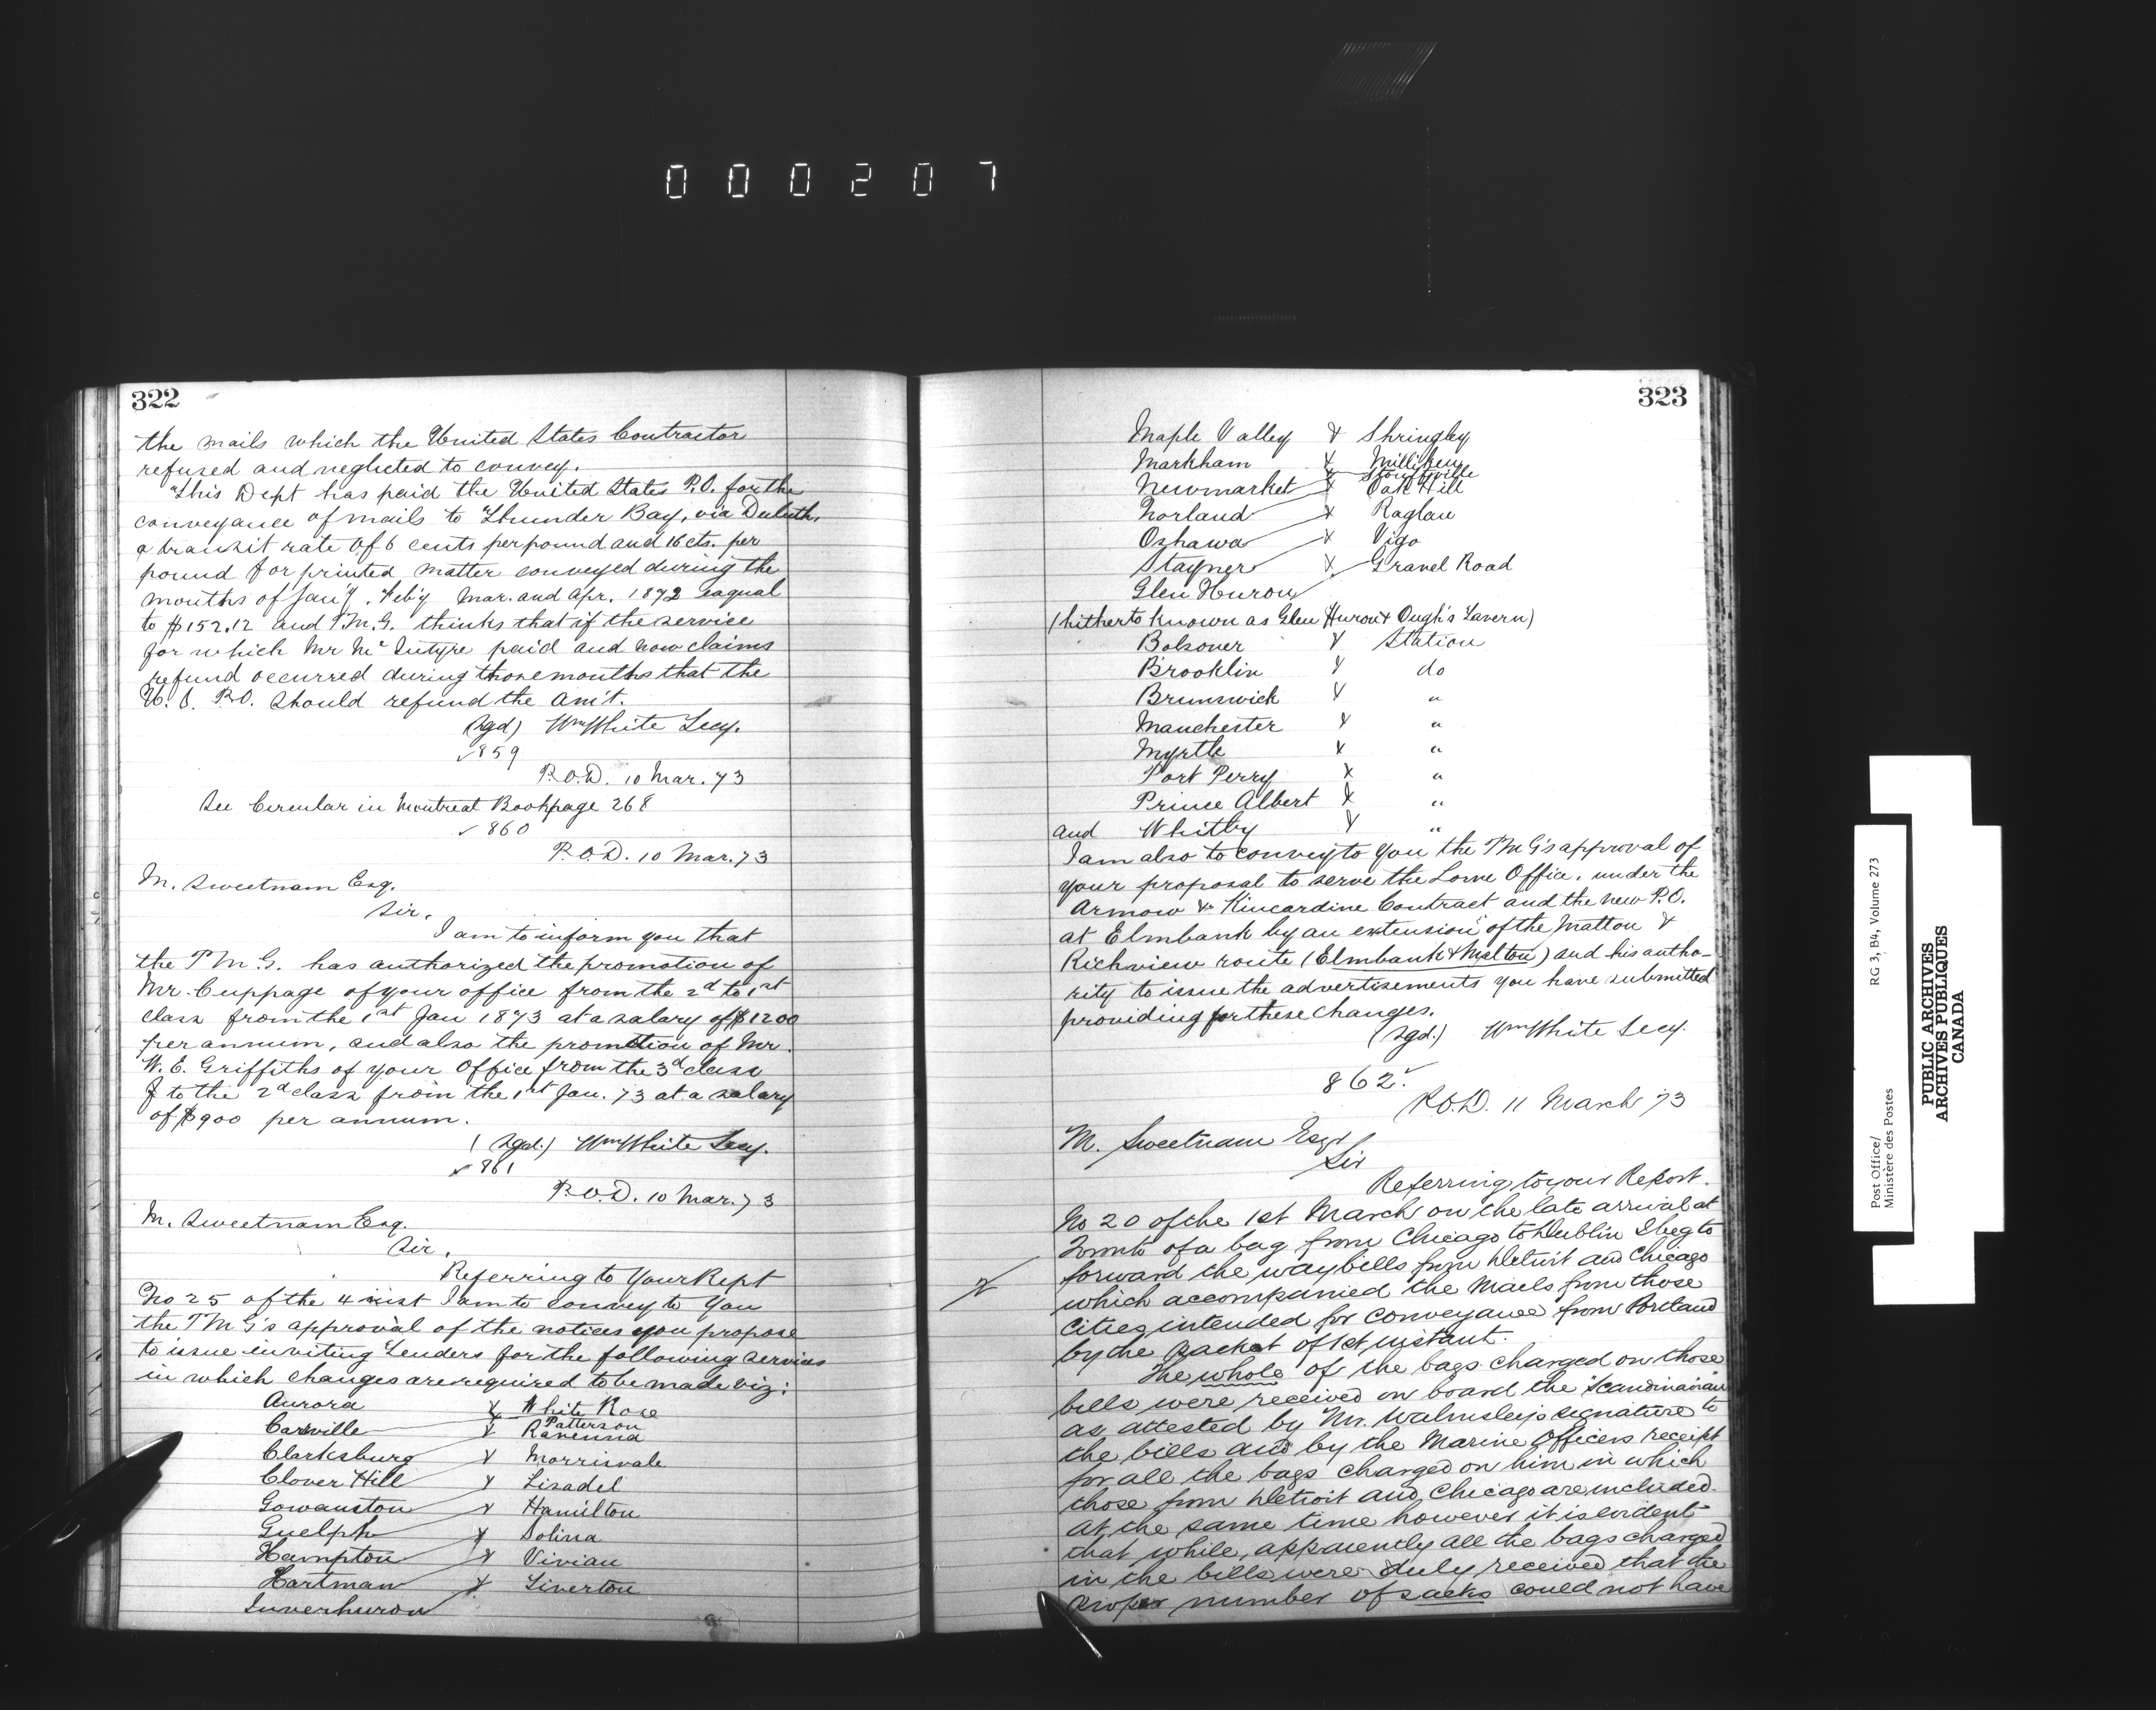 000207
322
the mails which the United States Contractor
refused and neglected to convey.
This Dept has paid the United States P.O. for the
conveyance of mails to Thunder Bay, via Duluth,
a transit rate of 6 cents per pound and 16 cts. per
pound for printed matter conveyed during the
months of Jan'y. Feb'y Mar. and Apr. 1872 eaqual
to $152.12 and P.M.G. thinks that if the service
for which Mr McIntyre paid and now claims
refund occurred during those months that the
U.S. P.O. should refund the am't.
(sgd) Wm White Secy.
859
P.O.D. 10 Mar. 73
See Circular in Montreal Book page 268
860
P.O.D. 10 Mar. 73
M. Sweetnam Esq.
Sir,
I am to inform you that
the P M G. has authorized the promotion of
Mr. Cuppage of your office from the 2d to 1st
class from the 1st Jan 1873 at a salary of $1200
per annum, and also the promotion of Mr.
W. E. Griffiths of your Office from the 3d class
to the 2d class from the 1st Jan. 73 at a salary
of $900 per annum.
(sgd.) Wm White Secy.
861
P.O.D. 10 Mar. 73
M. Sweetnam Esq.
Sir,
Referring to Your Rept
No 25 of the 4 inst I am to convey to You
the P M G's approval of the notices you propose
to issue inviting Tenders for the following services
in which changes are required to be made viz:
Aurora & White Rose
Carrville & Patterson
Clarksburg & Ravenna
Clover Hill & Morrisvale
Gowanston & Lisadel
Guelph & Hamilton
Hampton & Solina
Hartman & Vivian
Inverhuron & Tiverton
323
Maple Valley & Shringley
Markham & Milliken
Newmarket & Stouffville
Norland & Oak Hill
Oshawa & Raglan
Stayner & Vigo
Glen Huron & Gravel Road
(hitherto known as Glen Huron & Ough's Tavern)
Bolsover & Station
Brooklin & do
Brunswick & "
Manchester & "
Myrtle & "
Port Perry & "
Prince Albert & "
and Whitby & "
I am also to convey to you the P M G's approval of
your proposal to serve the Lorne Office, under the
Armow & Kincardine Contract and the new P.O.
at Elmbank by an extension of the Malton &
Richview route (Elmbank & Malton) and his autho-
rity to issue the advertisements you have submitted
providing for these changes.
(sgd.) Wm White Secy.
862
P.O.D. 11 March 73
M. Sweetnam Esqr
Sir
Referring to your Report.
No 20 of the 1st March on the late arrival at
Toronto of a bag from Chicago to Dublin I beg to
forward the waybills from Detroit and Chicago
which accompanied the Mails from those
Cities intended for conveyance from Portland
by the packet of 1st instant.
The whole of the bags charged on those
bills were received on board the "Scandinavian"
as attested by Mr. Walmsley's signature to
the bills and by the Marine Officers receipt
for all the bags charged on him in which
those from Detroit and Chicago are included.
At the same time however it is evident
that while, apparently all the bags charged
in the bills were duly received that the
proper number of sacks could not have
Post Office/
Ministère des Postes
RG 3, B4, Volume 273
PUBLIC ARCHIVES
ARCHIVES PUBLIQUES
CANADA